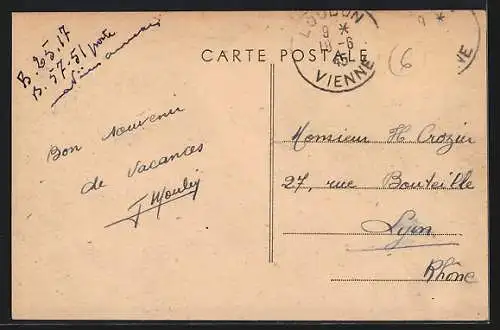 B. 25.17
B. 57-51 poste
CARTE POSTALE
LOUDUN
9 *
18-6
45
VIENNE
9 *
NE
6
Bon souvenir
de vacances
J Moulin
Monsieur H Crozier
27, rue Bouteille
Lyon
Rhône